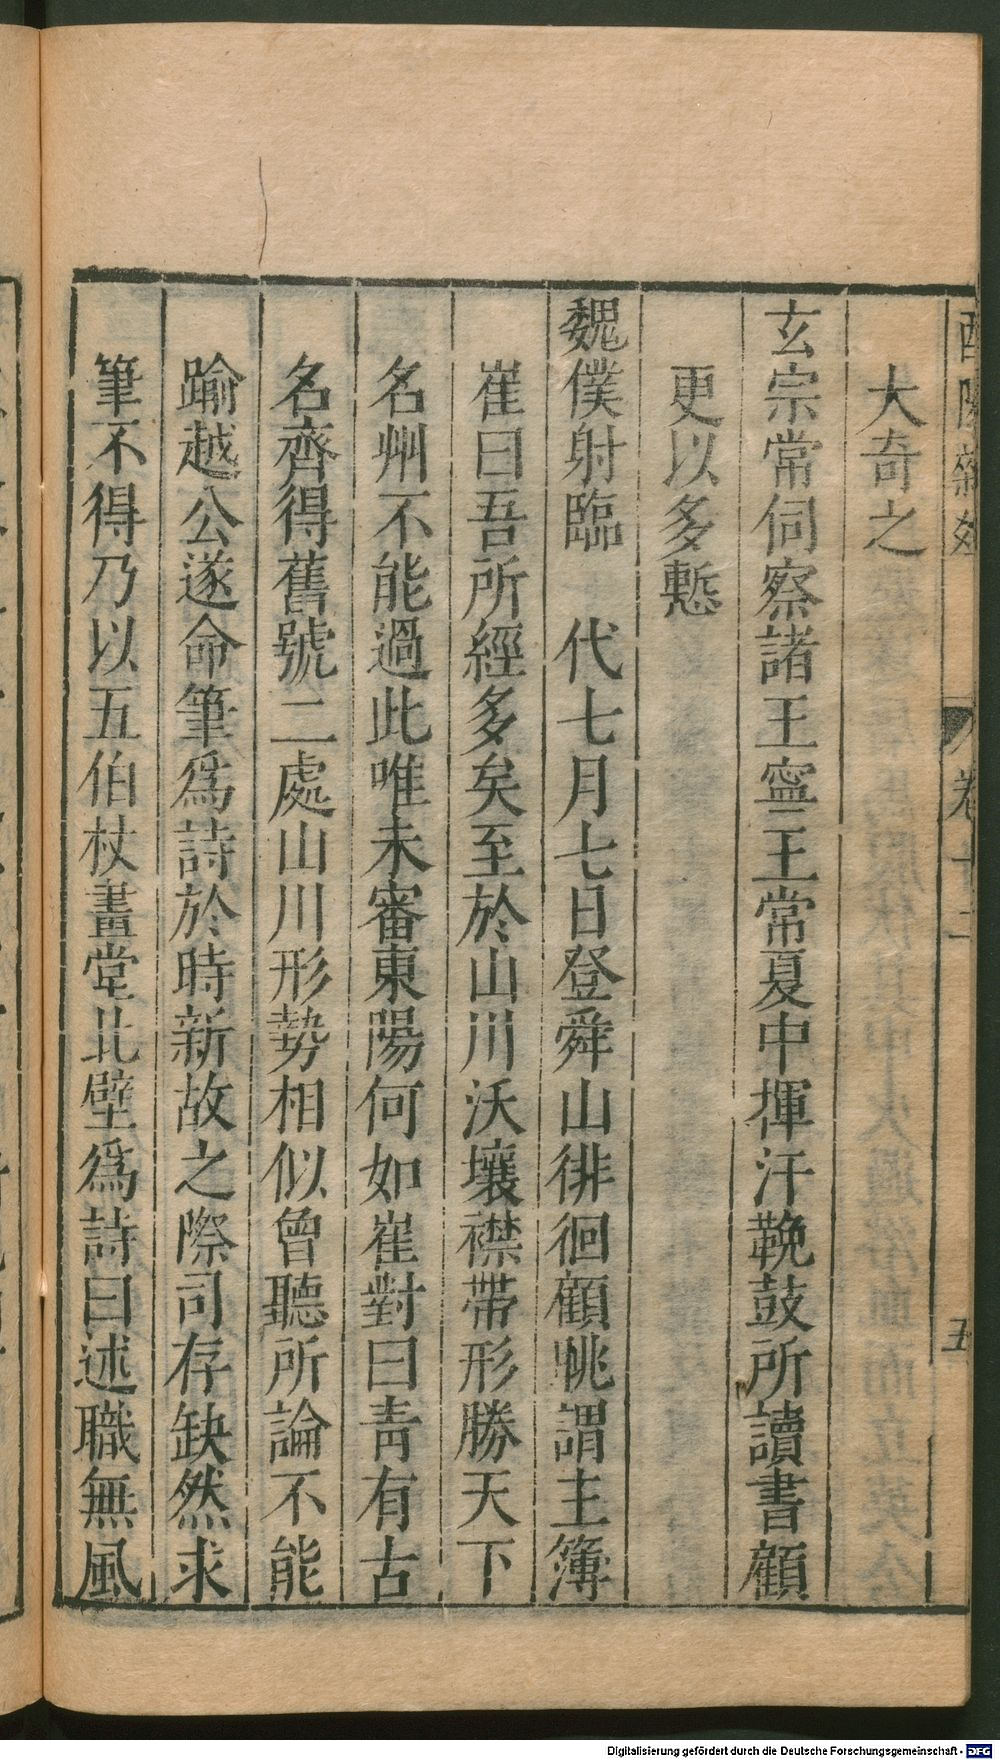 酉陽雜俎
卷十二
五
大奇之
玄宗常伺察諸王寧王常夏中揮汗鞔鼓所讀書顧
更以多慙
魏僕射臨　代七月七日登舜山徘徊顧眺謂主簿
崔曰吾所經多矣至於山川沃壤襟帶形勝天下
名州不能過此唯未審東陽何如崔對曰青有古
名齊得舊號二處山川形勢相似曾聽所論不能
踰越公遂命筆爲詩於時新故之際司存缺然求
筆不得乃以五伯杖畫堂北壁爲詩曰述職無風
Digitalisierung gefördert durch die Deutsche Forschungsgemeinschaft - DFG